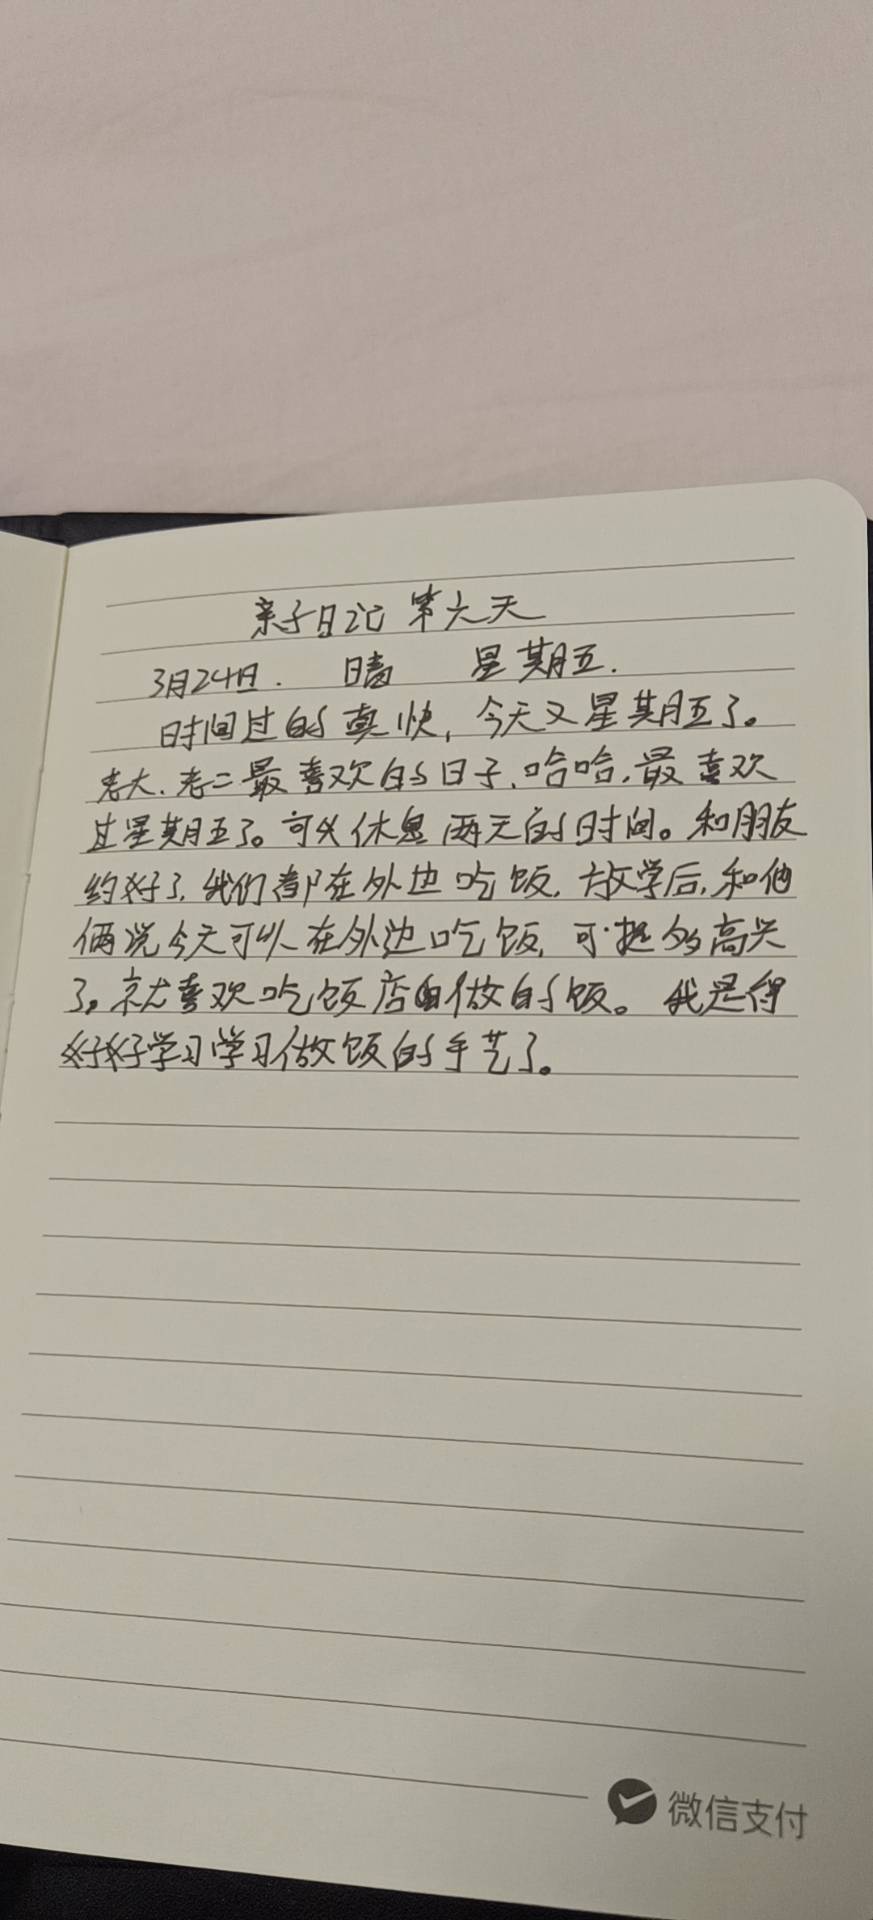 亲子日记 第六天
3月24日. 晴 星期五.
时间过的真快,今天又星期五了。
老大、老二最喜欢的日子,哈哈,最喜欢
过星期五了。可以休息两天的时间。和朋友
约好了,我们都在外边吃饭,放学后,和他
俩说今天可以在外边吃饭,可把的高兴
了。就喜欢吃饭店做的饭。我是得
好好学习学习做饭的手艺了。
微信支付